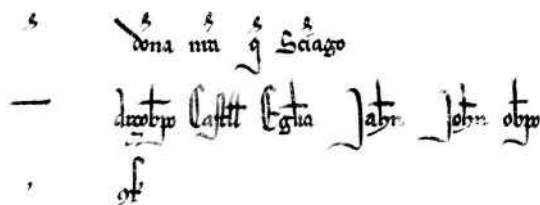 dona ma q Sciago
arzobpo Castll Eglia Jahn John obpo